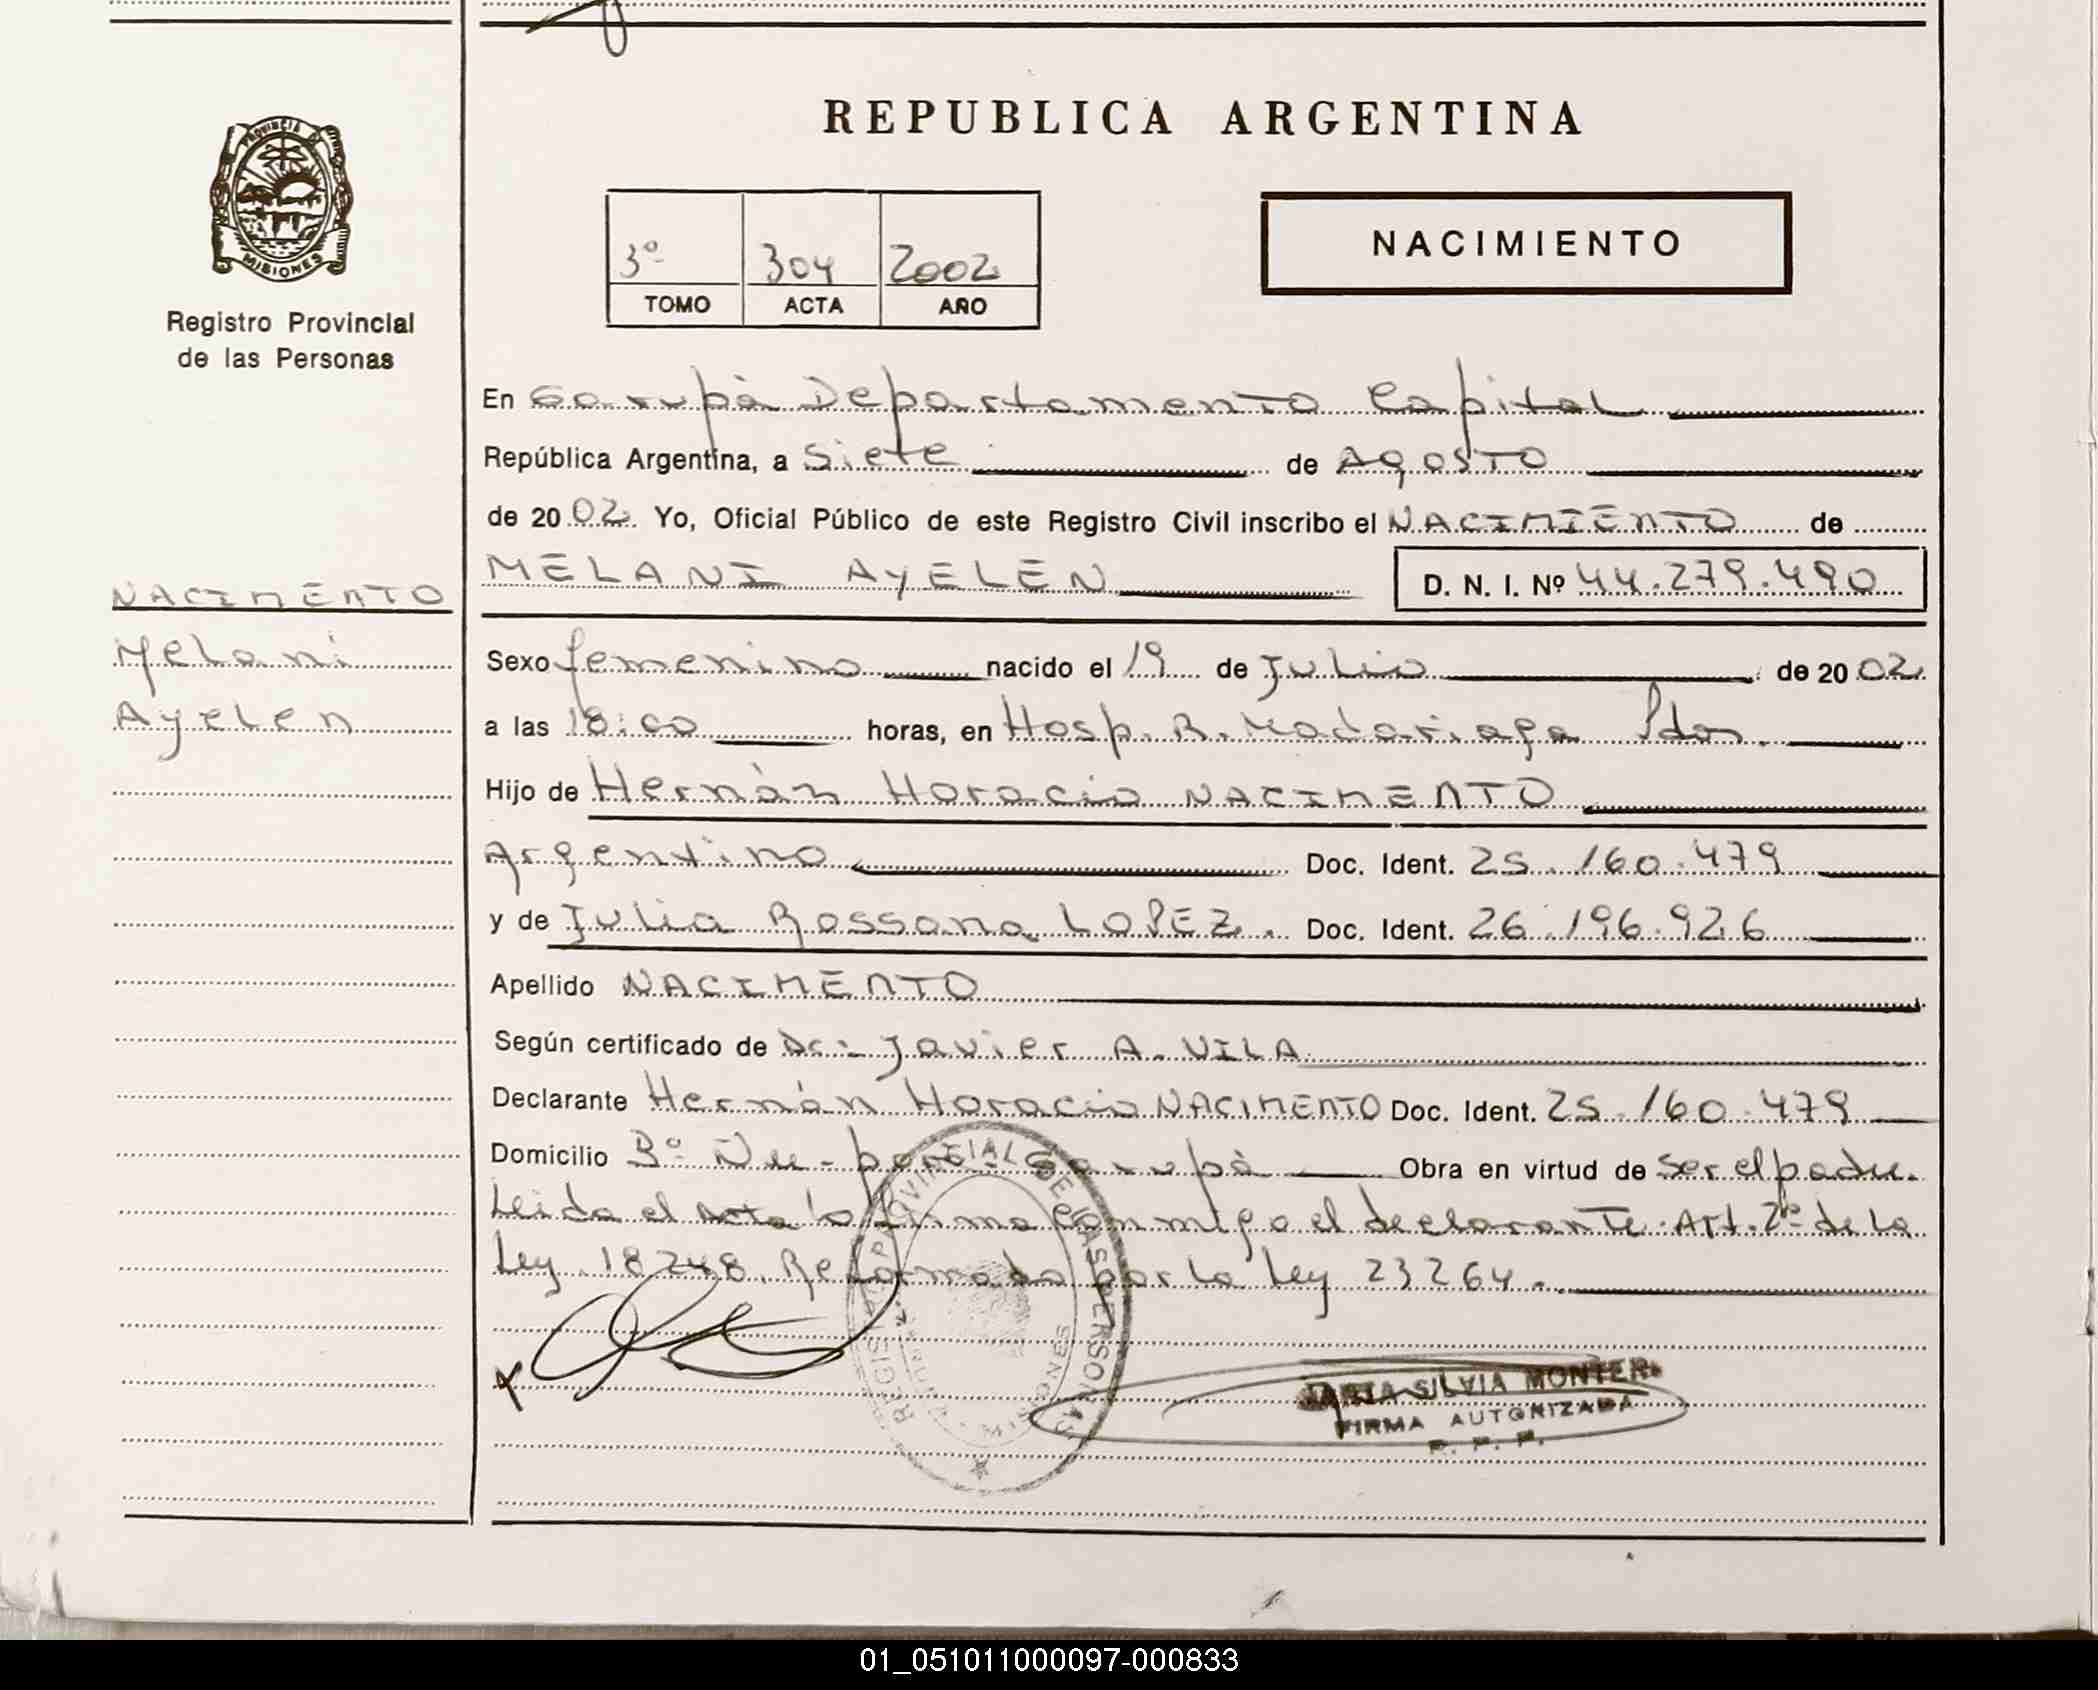 REPUBLICA ARGENTINA
PROVINCIA DE
MISIONES
Registro Provincial
de las Personas
3º 304 2002
TOMO ACTA AÑO
NACIMIENTO
En Garupà Departamento Capital
República Argentina, a Siete de Agosto
de 2002 Yo, Oficial Público de este Registro Civil inscribo el NACIMIENTO de
MELANI AYELEN D. N. I. Nº 44.279.490
NACIMENTO
Melani
Ayelen
Sexo femenino nacido el 19 de Julio de 2002
a las 18:00 horas, en Hosp. R. Madariaga Pdas.
Hijo de Hernàn Horacio NACIMENTO
Argentino Doc. Ident. 25.160.479
y de Julia Rossana LOPEZ. Doc. Ident. 26.196.926
Apellido NACIMENTO
Según certificado de Dr.- Javier A. VILA
Declarante Hernán Horacio NACIMENTO Doc. Ident. 25.160.479
Domicilio 3º Garupà Obra en virtud de ser el padre.
Leida el Acta la firma conmigo el declarante. Art. 2º de la
Ley 18248. Reformada por la Ley 23264.
REGISTRO PROVINCIAL DE LAS PERSONAS
MISIONES
SILVIA MONTIER
FIRMA AUTORIZADA
01_051011000097-000833